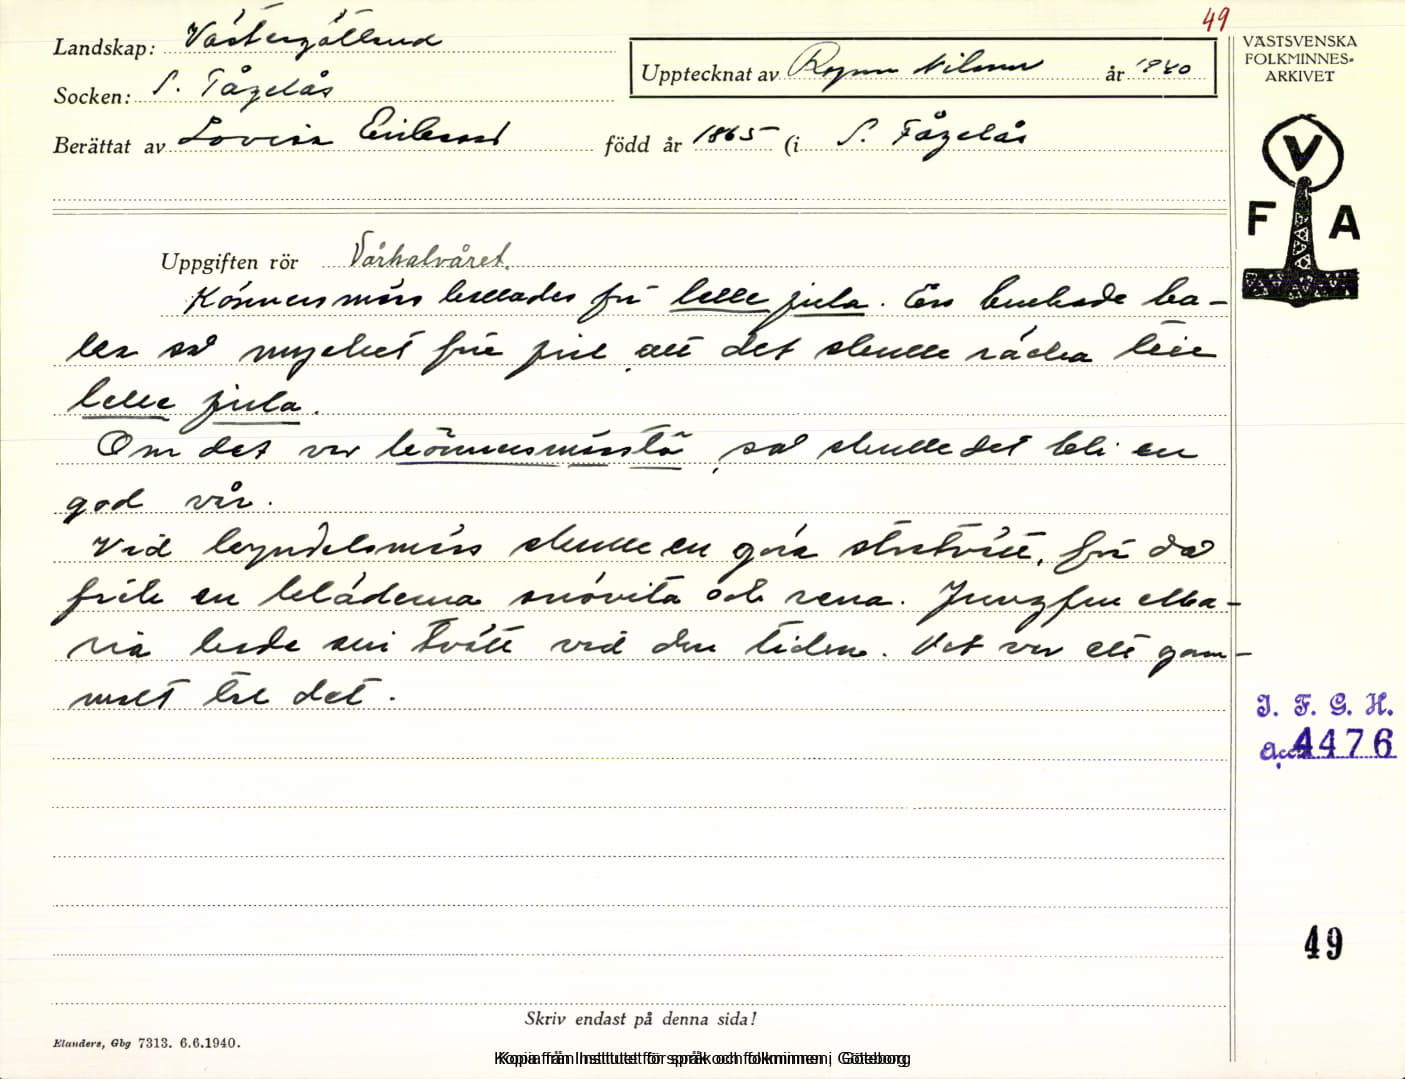 49
Landskap: Västergötland
Socken: S. Fågelås
Upptecknat av Ragnar Nilsson år 1940
Berättat av Lovisa Eriksson född år 1865 (i S. Fågelås
VÄSTSVENSKA
FOLKMINNES-
ARKIVET
V
F A
Uppgiften rör Vårhalvåret.
Könnersmäss kallades för lelle jula. En brukade ba-
ka så mycket före jul att det skulle räcka till
lelle jula.
Om det var könnersmässtö, så skulle det bli en
god vår.
Vid kyndelsmäss skulle en göra stortvätt, för då
fick en kläderna snövita och rena. Jungfru Ma-
ria hade sin tvätt vid den tiden. Det var ett gam-
malt tal det.
I. F. G. H.
Acc. 4476
49
Skriv endast på denna sida!
Elanders, Gbg 7313. 6.6.1940.
Kopia från Institutet för språk och folkminnen i Göteborg